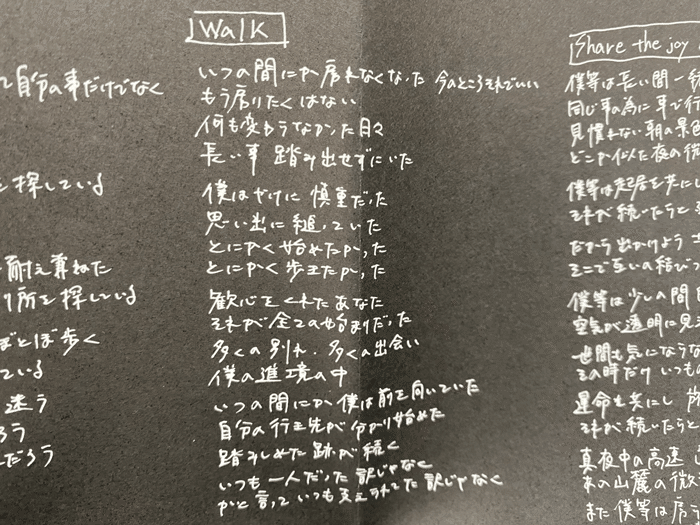 て自分の事だけでなく
を探している
耐え兼ねた
り所を探している
ぼとぼ歩く
ている
迷う
ろう
だろう
Walk
いつの間にか戻れなくなった 今のところそれでいい
もう戻りたくはない
何も変わらなかった日々
長い事 踏み出せずにいた
僕はやけに慎重だった
思い出に縋っていた
とにかく始めたかった
とにかく歩きたかった
歓心をくれたあなた
それが全ての始まりだった
多くの別れ・多くの出会い
僕の進境の中
いつの間にか僕は前を向いていた
自分の行き先が分かり始めた
踏みしめた跡が続く
いつも一人だった訳じゃなく
かと言っていつも支えられてた訳じゃなく
Share the joy
僕等は長い間一
同じ事の為に車で行
見慣れない朝の景色
どこか似た夜の微
僕等は起居を共にし
それが続いたらと
だから出かけよう
そこで互いの結びつ
僕等は少しの間
空気が透明に見
世間も気にならな
その時だけいつも
運命を共にし
それが続いたらと
真夜中の高速
あの山麓の微
また僕等は戻